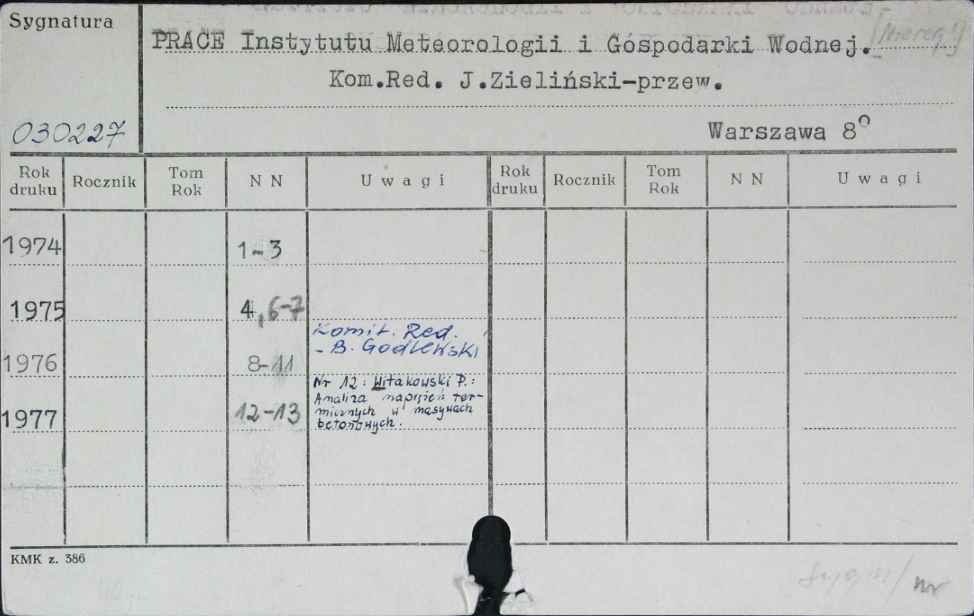 Sygnatura
PRACE Instytutu Meteorologii i Gospodarki Wodnej.
Kom.Red. J.Zieliński-przew.
030227
Warszawa 8°
Rok druku Rocznik Tom Rok N N Uwagi Rok druku Rocznik Tom Rok N N Uwagi
1974 1-3
1975 4,6-7
Komit. Red.
- B. Godlewski
1976 8-11
Nr 12: Witakowski P.:
Analiza naprężeń ter-
micznych w masywach
betonowych.
1977 12-13
KMK z. 386
nr